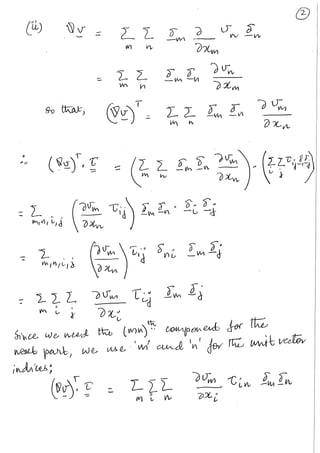 ②
(ii) ∇v = Σ_m Σ_n δ_m ∂/∂x_m v_n δ_n
= Σ_m Σ_n δ_m δ_n ∂v_n/∂x_m
so that, (∇v)^T = Σ_m Σ_n δ_m δ_n ∂v_m/∂x_n
∴ (∇v)^T · τ = (Σ_m Σ_n δ_m δ_n ∂v_m/∂x_n) · (Σ_i Σ_j τ_ij δ_i δ_j)
= Σ_{m,n,i,j} (∂v_m/∂x_n τ_ij) δ_m δ_n · δ_i δ_j
= Σ_{m,n,i,j} (∂v_m/∂x_n) τ_ij δ_ni δ_m δ_j
= Σ_m Σ_i Σ_j ∂v_m/∂x_i τ_ij δ_m δ_j
Since we need the (mn)^th component for the
next part, we use 'm' and 'n' for the unit vector
indices;
(∇v)^T · τ = Σ_m Σ_i Σ_n ∂v_m/∂x_i τ_in δ_m δ_n